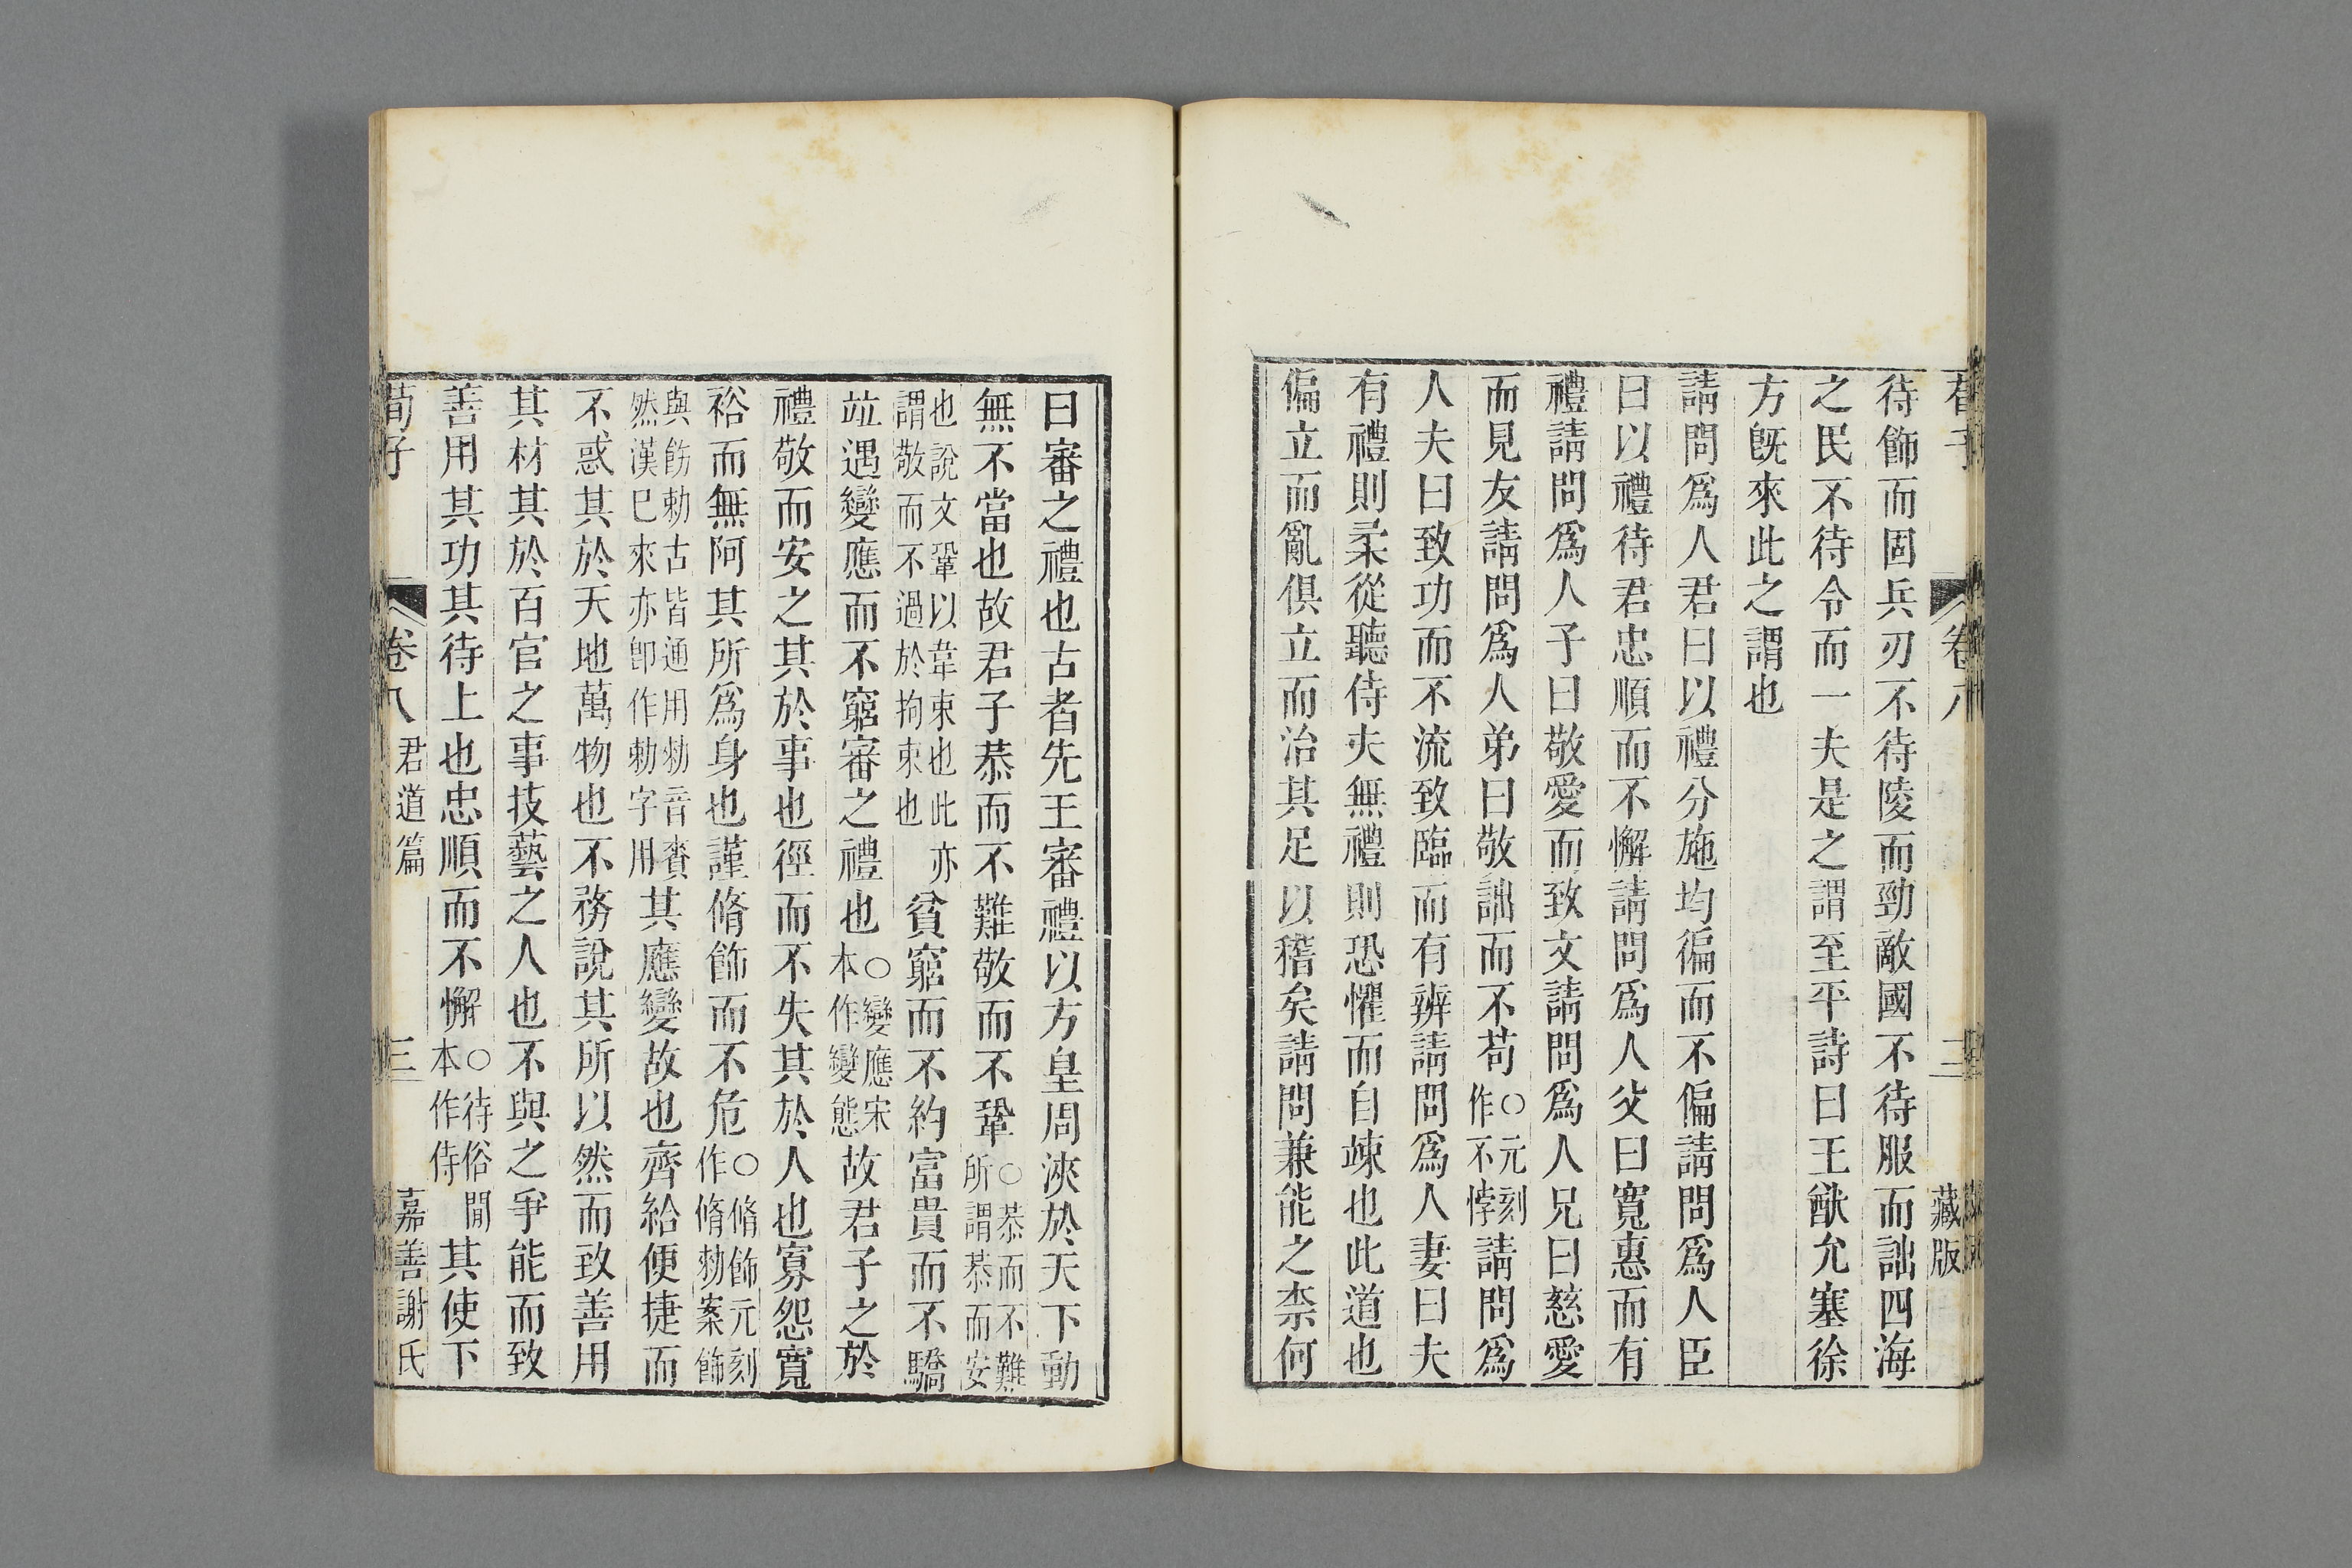 荀子 卷八 二 藏版
待飾而固兵刃不待陵而勁敵國不待服而詘四海
之民不待令而一夫是之謂至平詩曰王猷允塞徐
方旣來此之謂也
請問爲人君曰以禮分施均徧而不偏請問爲人臣
曰以禮待君忠順而不懈請問爲人父曰寬惠而有
禮請問爲人子曰敬愛而致文請問爲人兄曰慈愛
而見友請問爲人弟曰敬詘而不苟○元刻作不悖請問爲
人夫曰致功而不流致臨而有辨請問爲人妻曰夫
有禮則柔從聽侍夫無禮則恐懼而自竦也此道也
偏立而亂俱立而治其足以稽矣請問兼能之柰何
曰審之禮也古者先王審禮以方皇周浹於天下動
無不當也故君子恭而不難敬而不鞏○恭而不難所謂恭而安
也說文鞏以韋束也此亦謂敬而不過於拘束也貧窮而不約富貴而不驕
竝遇變應而不窮審之禮也○變應宋本作變態故君子之於
禮敬而安之其於事也徑而不失其於人也寡怨寬
裕而無阿其所爲身也謹脩飾而不危○脩飾元刻作脩勑案飾
與飭勑古皆通用勑音賚然漢已來亦卽作勅字用其應變故也齊給便捷而
不惑其於天地萬物也不務說其所以然而致善用
其材其於百官之事技藝之人也不與之爭能而致
善用其功其待上也忠順而不懈○待俗閒本作侍其使下
荀子 卷八 君道篇 三 嘉善謝氏